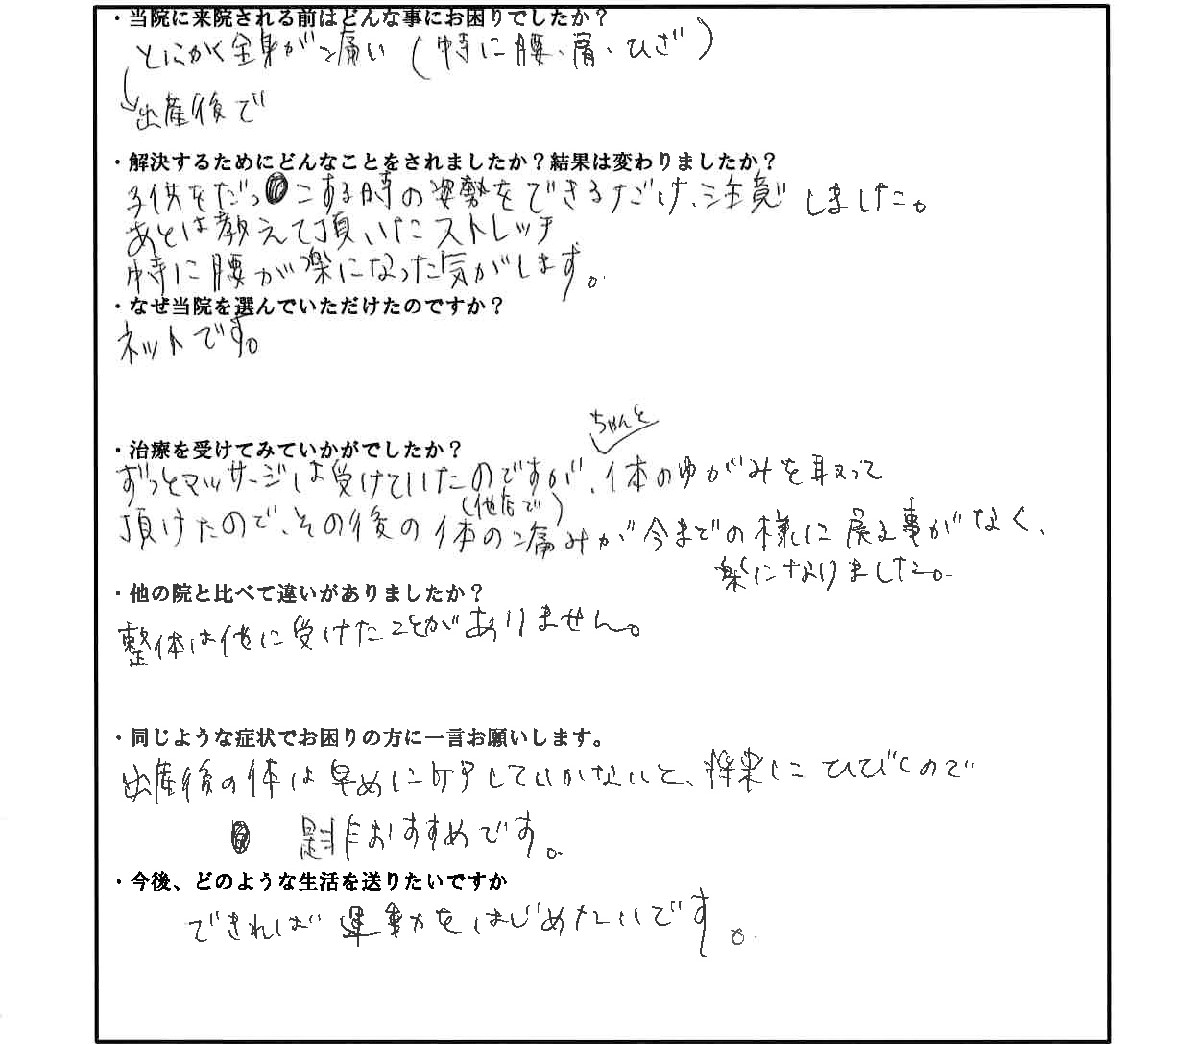 ・当院に来院される前はどんな事にお困りでしたか？
とにかく全身が痛い（特に腰、肩・ひざ）
↳出産後で
・解決するためにどんなことをされましたか？結果は変わりましたか？
子供をだっこする時の姿勢をできるだけ、注意しました。
あとは教えて頂いたストレッチ
特に腰が楽になった気がします。
・なぜ当院を選んでいただけたのですか？
ネットです。
・治療を受けてみていかがでしたか？
ちゃんと
ずっとマッサージは受けていたのですが、体のゆがみを取って
（他店で）
頂けたので、その後の体の痛みが今までの様に戻る事がなく、
楽になりました。
・他の院と比べて違いがありましたか？
整体は他に受けたことがありません。
・同じような症状でお困りの方に一言お願いします。
出産後の体は早めにケアしていかないと、将来にひびくので
是非おすすめです。
・今後、どのような生活を送りたいですか
できれば運動をはじめたいです。